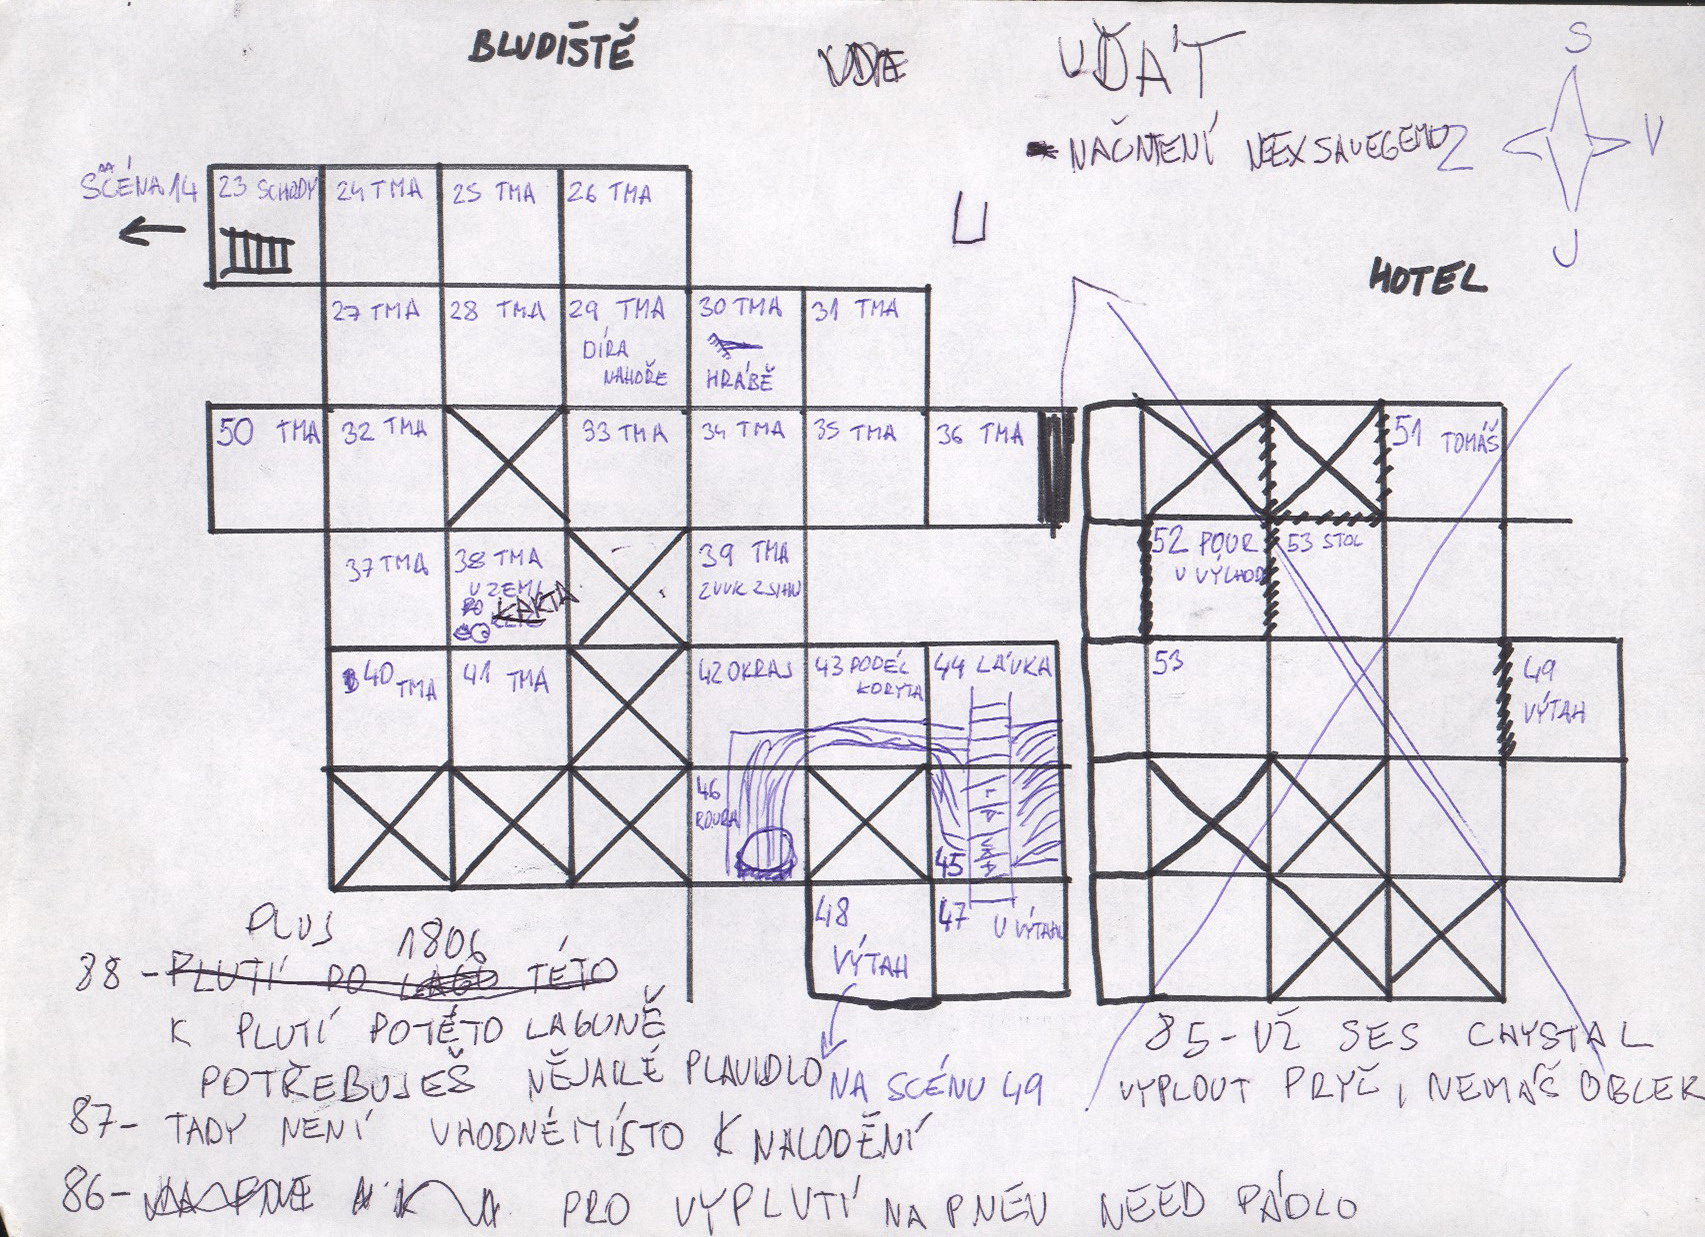 BLUDIŠTĚ
UĎAŤ
S
Z V
J
SCÉNA 14
HOTEL
23 SCHODY
24 TMA
25 TMA
26 TMA
27 TMA
28 TMA
29 TMA
DÍRA
NAHOŘE
30 TMA
HRÁBĚ
31 TMA
50 TMA
32 TMA
33 TMA
34 TMA
35 TMA
36 TMA
37 TMA
38 TMA
V ZEMI
KARTA
39 TMA
ZVUK ZSHH
40 TMA
41 TMA
42 OKRAJ
43 PODÉL
KORYTA
44 LÁVKA
46
ROURA
45
48
VÝTAH
47
U VÝTAHU
NA SCÉNU 49
51 TOMÁŠ
52 POUR
U VÝCHOD
53 STOL
53
49
VÝTAH
PLUS
1806
88 - PLUTÍ PO TÉTO
K PLUTÍ POTÉTO LAGUNĚ
POTŘEBUJEŠ NĚJAKÉ PLAVIDLO
87 - TADY NENÍ VHODNÉ MÍSTO K NALODĚNÍ
86 - PRO VYPLUTÍ NA PNĚV NEED PÁDLO
85 - UŽ SES CHYSTAL
VYPLOUT PRYČ, NEMÁŠ OBLEK